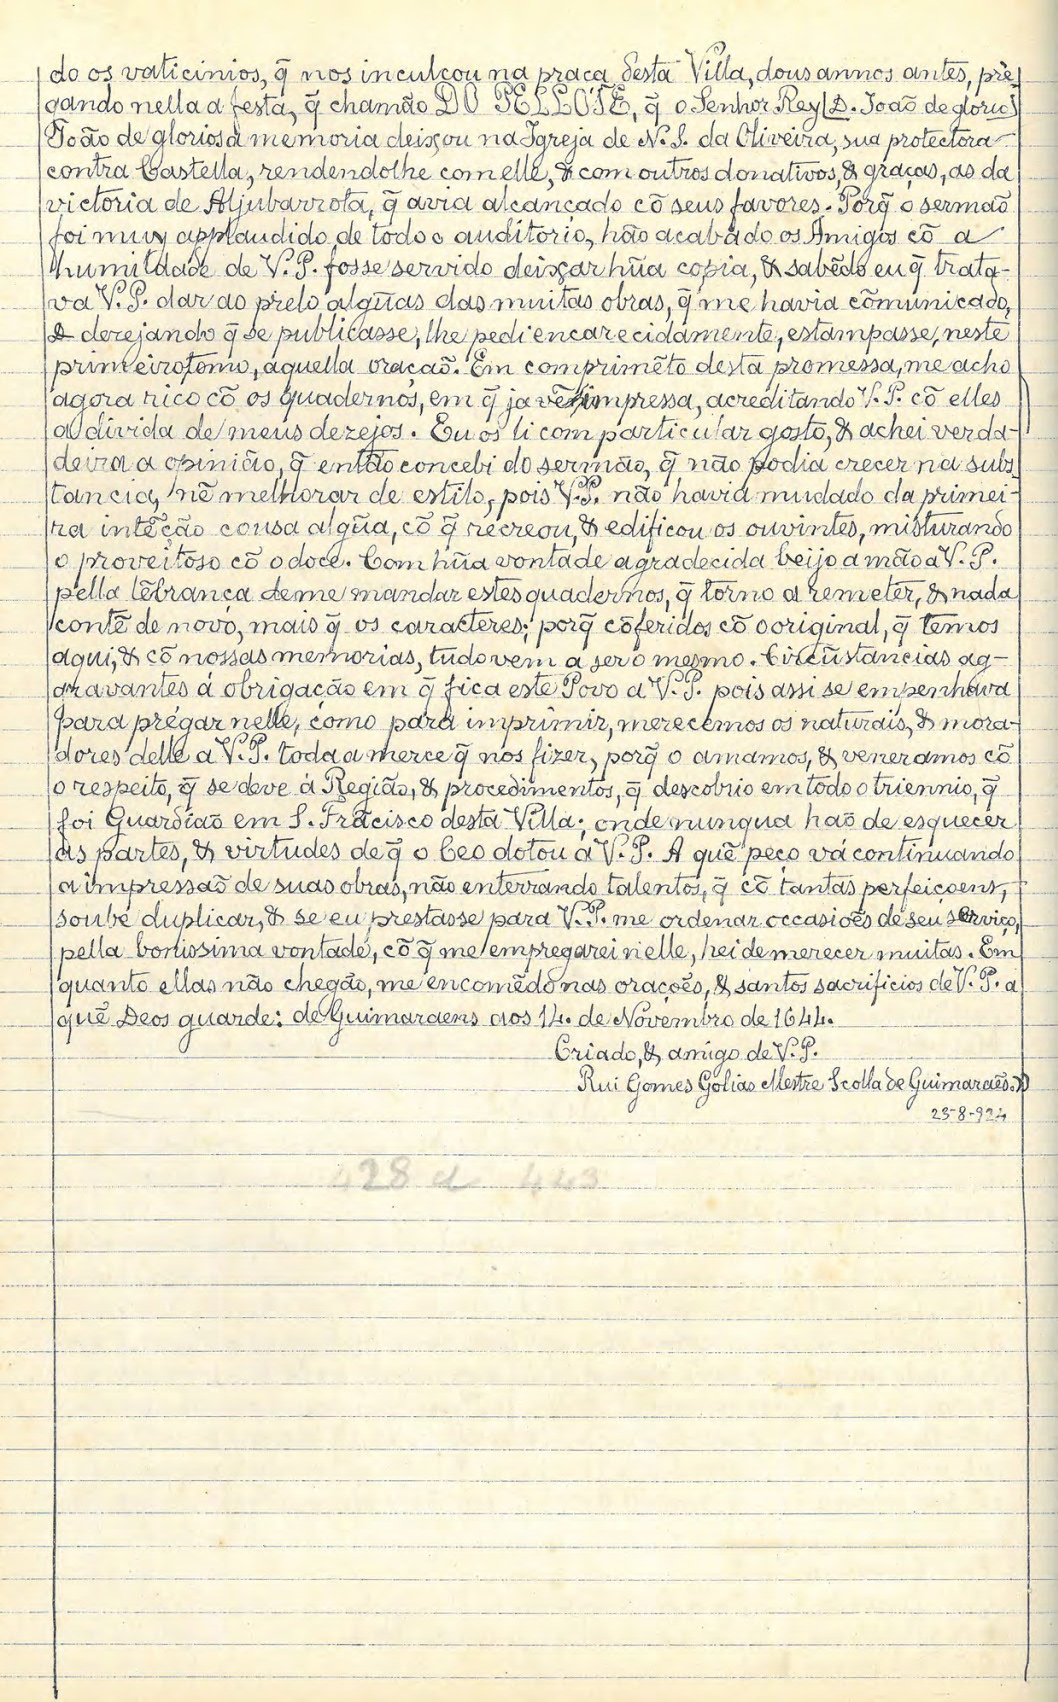 do os vaticinios, q̃ nos inculcou na praça desta Villa, dous annos antes, pré-
gando nella a festa, q̃ chamão DO PELLOTE, q̃ o Senhor Rey [D. Joaõ de glorio]
Joaõ de gloriosa memoria deixou na Igreja de N. S. da Oliveira, sua protectora
contra Castella, rendendolhe com elle, & com outros donativos, & graças, as da
victoria de Aljubarrota, q̃ avia alcançado cõ seus favores. Porq̃ o sermaõ
foi muy applaudido de todo o auditorio, não acabádo os Amigos cõ a
humildade de V. P. fosse servido deixar hũa copia, & sabẽdo eu q̃ trata-
va V. P. dar ao prelo algũas das muitas obras, q̃ me havia cõmunicado,
& dezejando q̃ se publicasse, lhe pedi encarecidamente, estampasse, neste
primeiro tomo, aquella oraçaõ. Em comprimẽto desta promessa, me acho
agora rico cõ os quadernos, em q̃ ja vẽ impressa, acreditando V. P. cõ elles
a divida de meus dezejos. Eu os li com particular gosto, & achei verda-
deira a opinião, q̃ então concebi do sermão, q̃ não podia crecer na subs
tancia, nẽ melhorar de estilo, pois V. P. não havia mudado da primei-
ra intẽção cousa algũa, cõ q̃ recreou, & edificou os ouvintes, misturando
o proveitoso cõ o doce. Com hũa vontade agradecida beijo a mão a V. P.
pella lẽbrança de me mandar estes quadernos, q̃ torno a remeter, & nada
contẽ de novo, mais q̃ os caracteres; porq̃ cõferidos cõ o original, q̃ temos
aqui, & cõ nossas memorias, tudo vem a ser o mesmo. Circũstancias ag-
gravantes á obrigação em q̃ fica este Povo a V. P. pois assi se empenhava
para prégar nelle, como para imprimir, merecemos os naturais, & mora-
dores delle a V. P. toda a merce q̃ nos fizer, porq̃ o amamos, & veneramos cõ
o respeito, q̃ se deve á Região, & procedimentos, q̃ descobrio em todo o triennio, q̃
foi Guardião em S. Frãcisco desta Villa; onde nunqua haõ de esquecer
as partes, & virtudes de q̃ o Ceo dotou a V. P. A quẽ peço vá continuando
a impressaõ de suas obras, não enterrando talentos, q̃ cõ tantas perfeiçoens,
soube duplicar, & se eu prestasse para V. P. me ordenar occasiões de seu serviço,
pella bonissima vontade, cõ q̃ me empregarei nelle, hei de merecer muitas. Em
quanto ellas não chegão, me encomẽdo nas orações, & santos sacrificios de V. P. a
quẽ Deos guarde: de Guimaraens aos 14. de Novembro de 1644.
Criado, & amigo de V. P.
Rui Gomes Golias Mestre Scolla de Guimaraẽs.
23-8-924
428 a 443